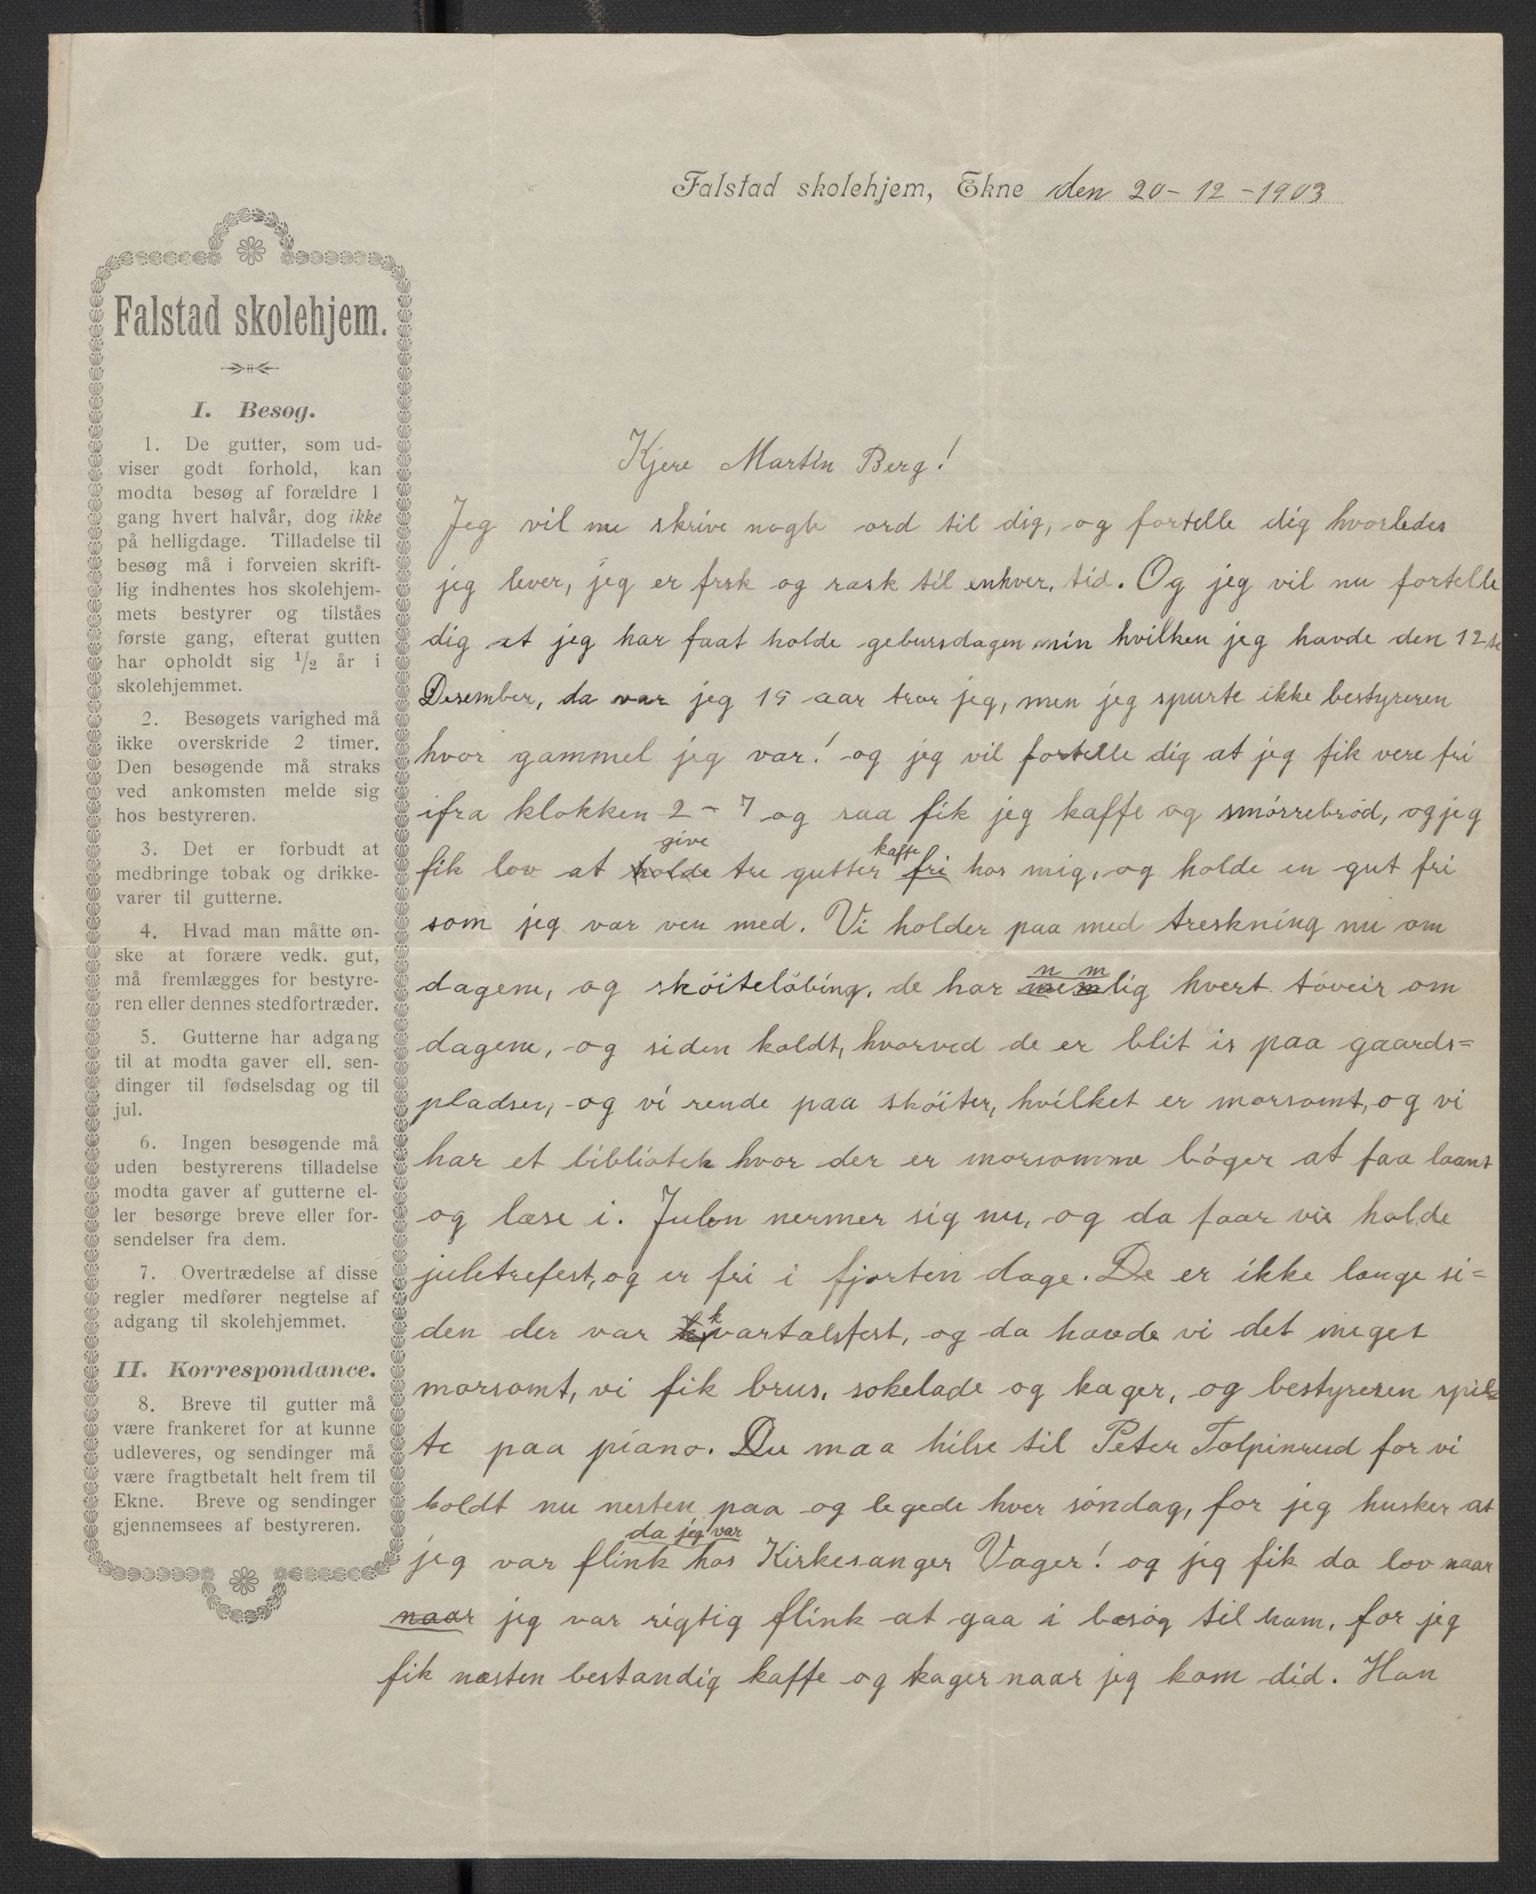 Falstad skolehjem, Ekne den 20-12-1903
Falstad skolehjem.
I. Besøg.
1. De gutter, som ud-
viser godt forhold, kan
modta besøg af forældre 1
gang hvert halvår, dog ikke
på helligdage. Tilladelse til
besøg må i forveien skrift-
lig indhentes hos skolehjem-
mets bestyrer og tilståes
første gang, efterat gutten
har opholdt sig 1/2 år i
skolehjemmet.
2. Besøgets varighed må
ikke overskride 2 timer.
Den besøgende må straks
ved ankomsten melde sig
hos bestyreren.
3. Det er forbudt at
medbringe tobak og drikke-
varer til gutterne.
4. Hvad man måtte øn-
ske at forære vedk. gut,
må fremlægges for bestyre-
ren eller dennes stedfortræder.
5. Gutterne har adgang
til at modta gaver ell. sen-
dinger til fødselsdag og til
jul.
6. Ingen besøgende må
uden bestyrerens tilladelse
modta gaver af gutterne el-
ler besørge breve eller for-
sendelser fra dem.
7. Overtrædelse af disse
regler medfører negtelse af
adgang til skolehjemmet.
II. Korrespondance.
8. Breve til gutter må
være frankeret for at kunne
udleveres, og sendinger må
være fragtbetalt helt frem til
Ekne. Breve og sendinger
gjennemsees af bestyreren.
Kjere Martin Berg!
Jeg vil nu skrive nogle ord til dig, og fortelle dig hvorledes
jeg lever, jeg er frsk og rask til enhver tid. Og jeg vil nu fortelle
dig at jeg har faat holde gebursdagen min hvilken jeg havde den 12te
Desember, da var jeg 15 aar tror jeg, men jeg spurte ikke bestyreren
hvor gammel jeg var! og jeg vil fortelle dig at jeg fik vere fri
ifra klokken 2-7 og saa fik jeg kaffe og smörrebröd, og jeg
give kaffe
fik lov at holde tre gutter fri hos mig, og holde en gut fri
som jeg var ven med. Vi holder paa med treskning nu om
n m
dagene, og sköitelöbing, de har memlig hvert töveir om
dagene, og siden koldt, hvorved de er blit is paa gaards=
pladsen, og vi rende paa sköiter, hvilket er morsomt, og vi
har et bibliotek hvor der er morsomme böger at faa laant
og læse i. Julen nermer sig nu, og da faar vi holde
juletrefest, og er fri i fjorten dage. De er ikke lange si=
k
den der var kvartalsfest, og da havde vi det meget
morsomt, vi fik brus, sokelade og kager, og bestyreren spil=
te paa piano. Du maa hilse til Peter Tolpinrud for vi
holdt nu nesten paa og legede hver söndag, for jeg husker at
da jeg var
jeg var flink hos Kirkesanger Vager! og jeg fik da lov naar
naar jeg var rigtig flink at gaa i besög til ham, for jeg
fik næsten bestandig kaffe og kager naar jeg kom did. Han